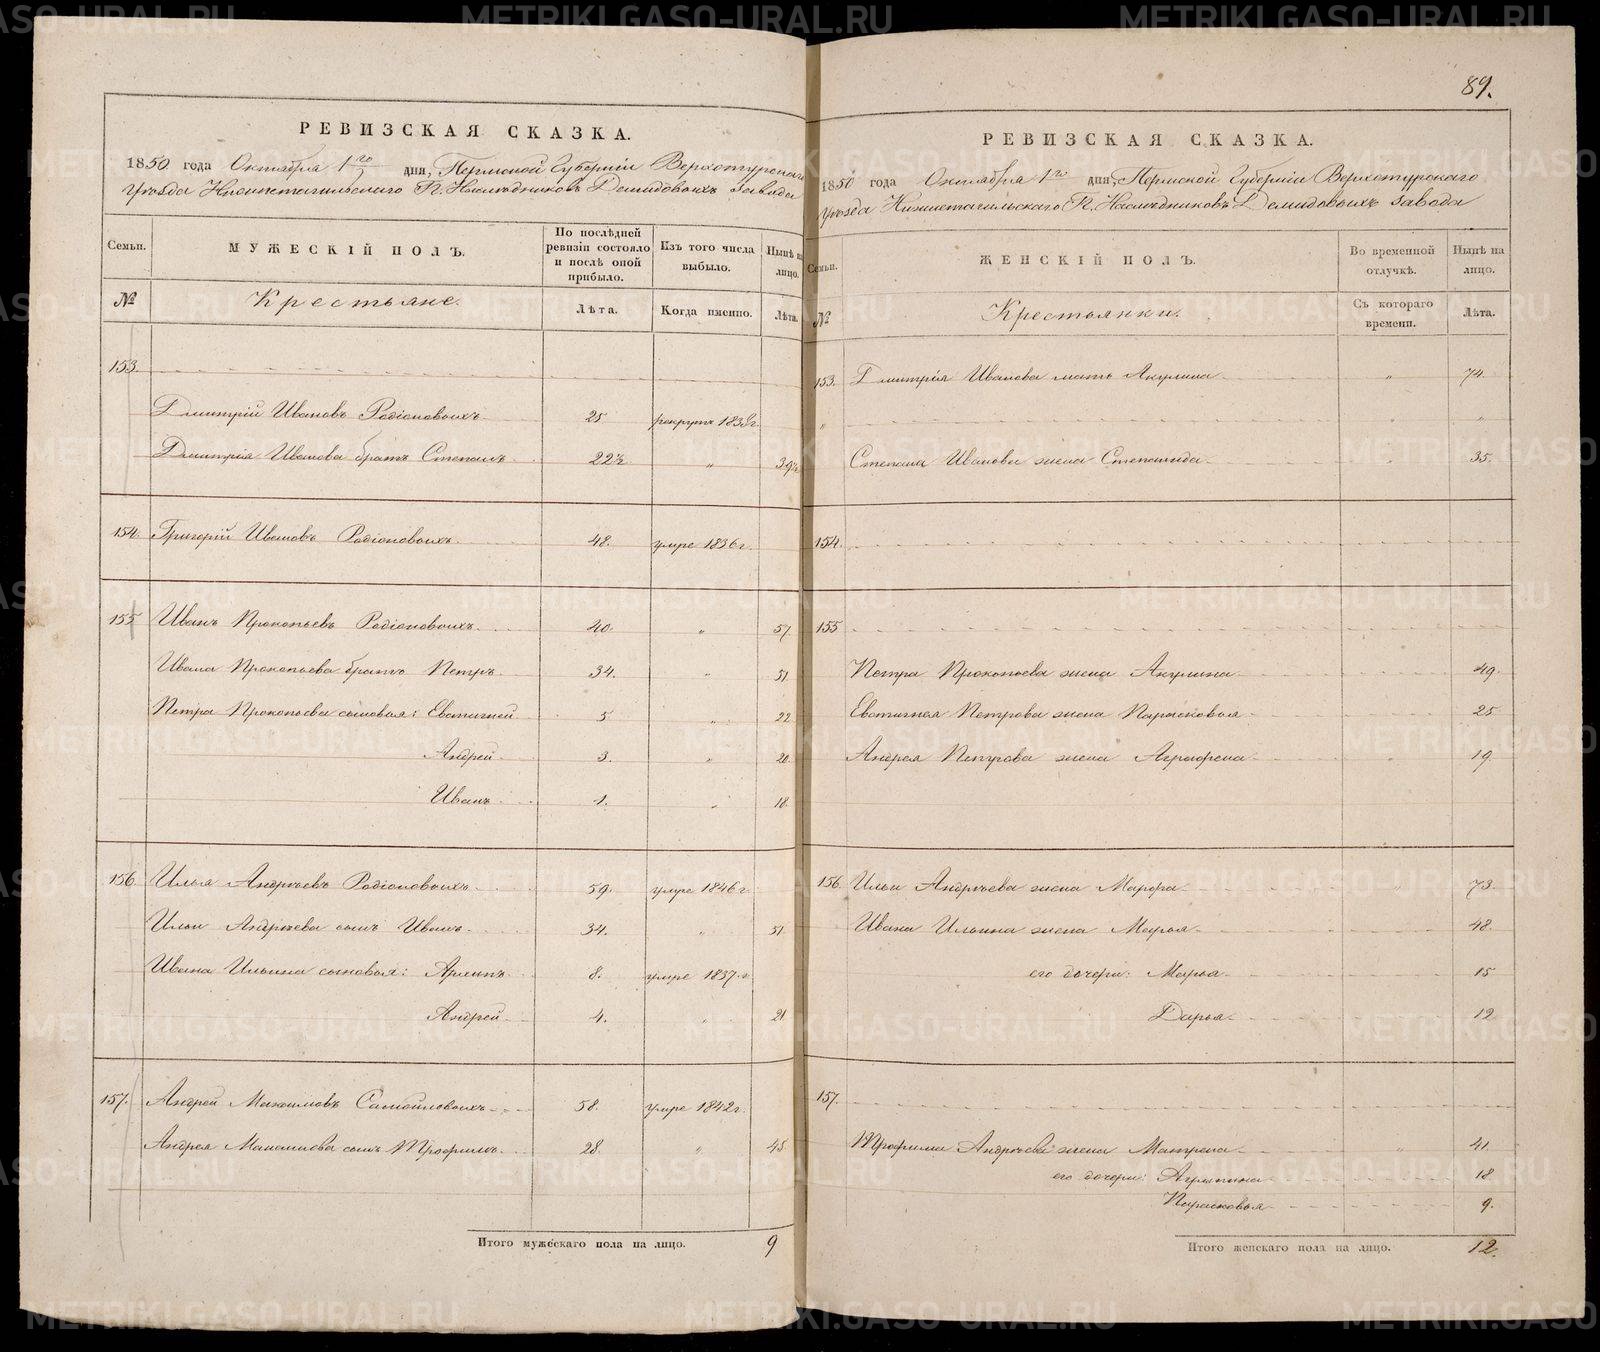 89.
РЕВИЗСКАЯ СКАЗКА.
1850 года Октября 1го дня, Пермской Губерніи Верхотурскаго
Уѣзда Нижнетагильскаго Гг. Наслѣдниковъ Демидовыхъ Завода
Семьи. МУЖЕСКІЙ ПОЛЪ. По послѣдней ревизіи состояло и послѣ оной прибыло. Изъ того числа выбыло. Нынѣ на лицо.
№ Крестьяне. Лѣта. Когда именно. Лѣта.
153.
Дмитрій Ивановъ Родіоновыхъ 25 рекрутъ 1838г.
Дмитрія Иванова братъ Степанъ 22½ „ 39½
154. Григорій Ивановъ Родіоновыхъ 48. умре 1836г.
155 Иванъ Прокопьевъ Родіоновыхъ 40. „ 57.
Ивана Прокопьева братъ Петръ 34. „ 51
Петра Прокопьева сыновья: Евстигней 5 „ 22
Андрей 3. „ 20
Иванъ 1. „ 18.
156. Илья Андреевъ Родіоновыхъ 59. умре 1846г
Ильи Андреева сынъ Иванъ 34. „ 51
Ивана Ильина сыновья: Архипъ 8. умре 1837.г
Андрей 4. „ 21
157. Андрей Максимовъ Самойловыхъ 58. умре 1842г.
Андрея Максимова сынъ Трофимъ 28. „ 45
Итого мужескаго пола на лицо. 9
РЕВИЗСКАЯ СКАЗКА.
1850 года Октября 1го дня, Пермской Губерніи Верхотурскаго
Уѣзда Нижнетагильскаго Гг. Наслѣдниковъ Демидовыхъ Завода
Семьи. ЖЕНСКІЙ ПОЛЪ. Во временной отлучкѣ. Нынѣ на лицо.
№ Крестьянки. Съ котораго времени. Лѣта.
153. Дмитрія Иванова мать Акулина „ 74.
„ „
Степана Иванова жена Степанида 35.
154.
155
Петра Прокопьева жена Акулина 49.
Евстигнея Петрова жена Парасковья 25
Андрея Петрова жена Аграфена 19
156. Ильи Андреева жена Марфа „ 73
Ивана Ильина жена Марья 48
его дочери: Марья 15
Дарья 12
157.
Трофима Андреева жена Матрена „ 41
его дочери: Агрипина 18
Парасковья 9.
Итого женскаго пола на лицо. 12.
METRIKI.GASO-URAL.RU